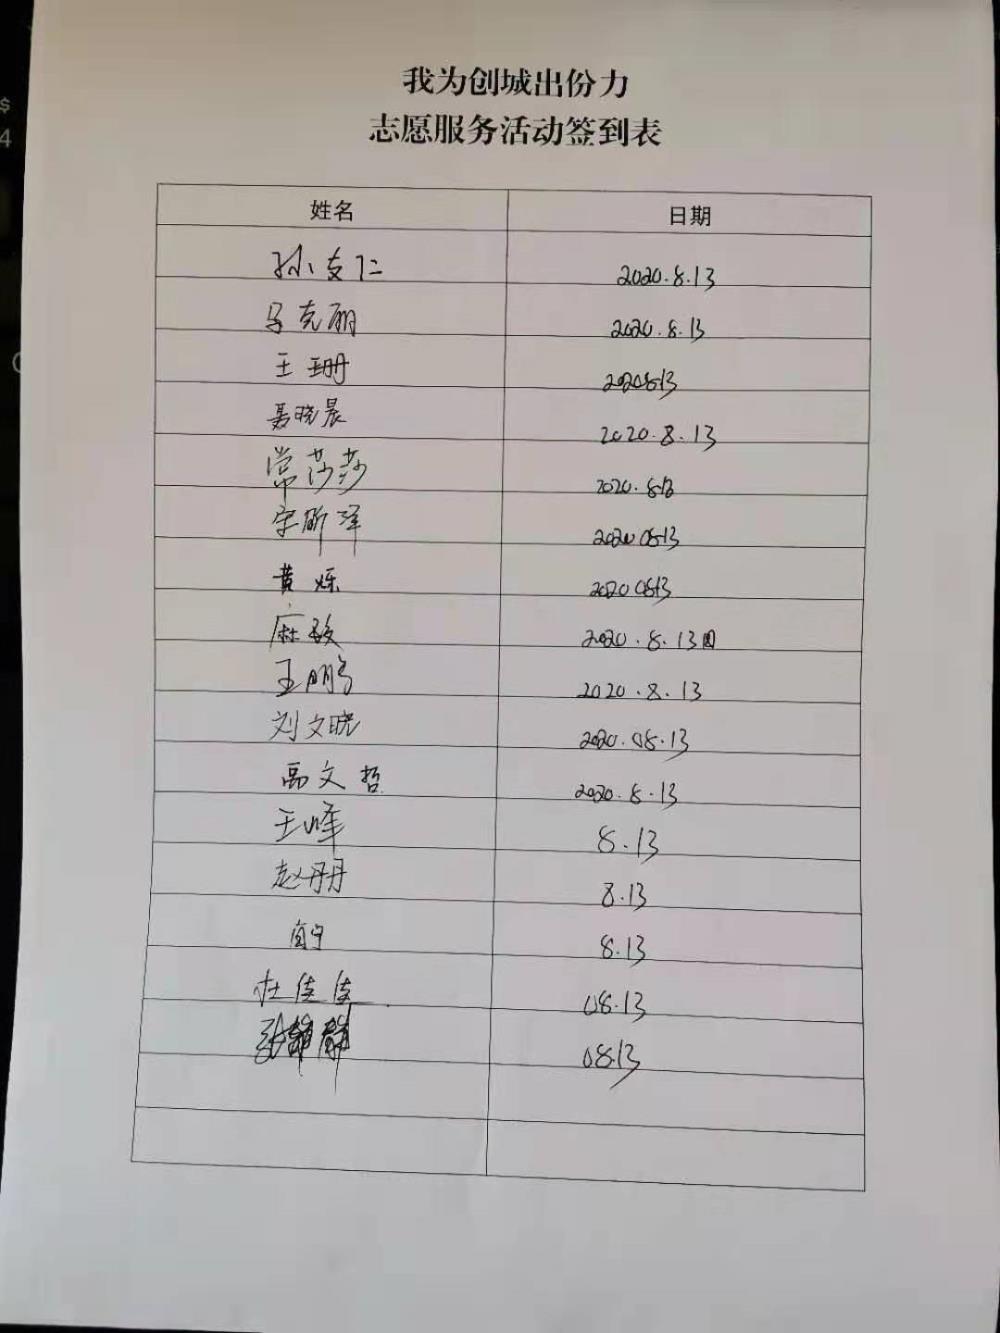 我为创城出份力
志愿服务活动签到表
姓名 日期
孙友仁 2020.8.13
马克丽 2020.8.13
王珊 20208.13
聂晓晨 2020.8.13
常莎莎 2020.8.13
宋昕泽 20200813
黄烁 20200813
麻敏 2020.8.13
王鹏 2020.8.13
刘文晓 2020.08.13
高文哲 2020.8.13
王峰 8.13
赵丹丹 8.13
8.13
杜佳佳 08.13
张静静 0813